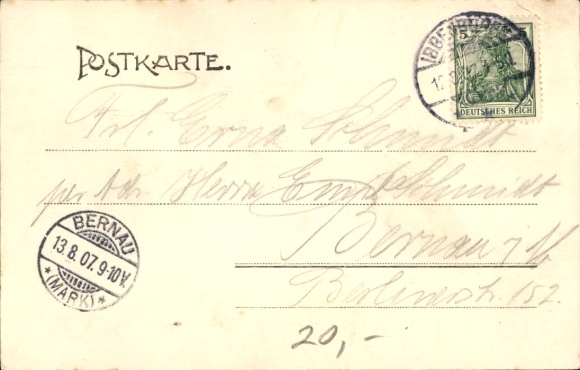 POSTKARTE.
IBBENBÜREN
5 5
DEUTSCHES REICH
Frl. Erna Schmidt
per Adr. Herrn Emil Schmidt
Bernau i/M
Berlinerstr. 152.
BERNAU
13.8.07. 9-10V.
* (MARK) *
20,-